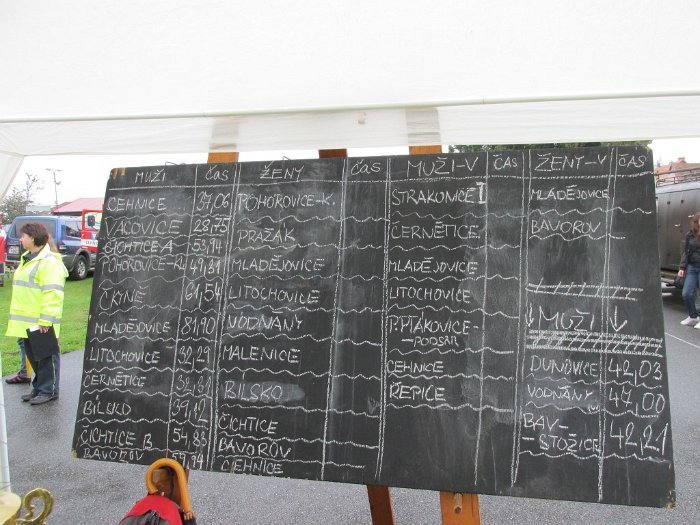 MUŽI ČAS
ČEHNICE 37,06
VACOVICE 28,75
ČICHTICE A 53,14
POHOROVICE-KL 49,81
ČKYNĚ 61,54
MLADĚJOVICE 81,90
LITOCHOVICE 32,29
ČERNĚTICE
BILSKO 39,12
ČICHTICE B 54,83
BAVOROV 59,94
ŽENY ČAS
POHOROVICE-K.
PRAŽÁK
MLADĚJOVICE
LITOCHOVICE
VODŇANY
MALENICE
BILSKO
ČICHTICE
BAVOROV
ČEHNICE
MUŽI-V ČAS
STRAKONICE I
ČERNĚTICE
MLADĚJOVICE
LITOCHOVICE
P.PTÁKOVICE-
-PODSR
ČEHNICE
ŘEPICE
ŽENY-V ČAS
MLADĚJOVICE
BAVOROV
↓MUŽI↓
DUNOVICE 42,03
VODŇANY 47,00
BAV-
-STOŽICE 42,21